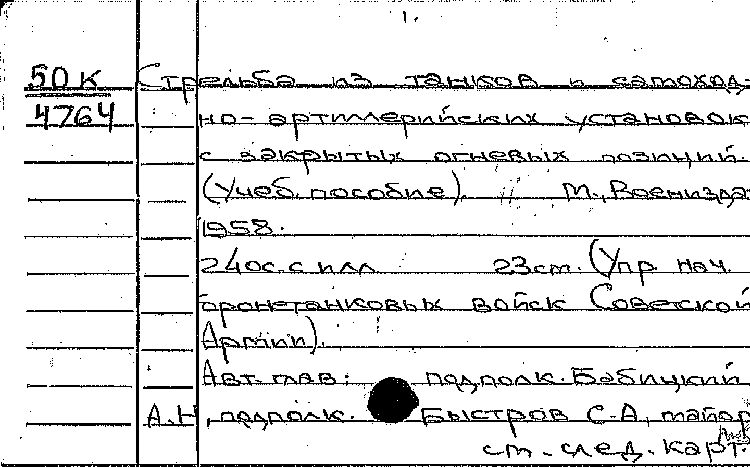 1.
50 К Стрельба из танков и самоход-
4764 но-артиллерийских установок
с закрытых огневых позиций
(Учеб. пособие). М., Воениздат
1958.
240с. с илл 23см. (Упр. нач.
бронетанковых войск Советской
Армии).
Авт. глав: подполк. Бабицкий
А.Н, подполк. Быстров С.А, майор
ст. след. карт.